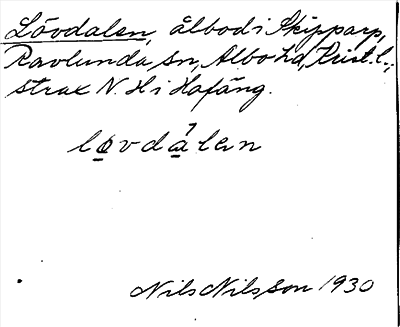 Lövdalen, ålbod i Skipparp,
Ravlunda sn, Albo hd, Krist. l.,
strax N. H i Hafäng.
lövdalen
Nils Nilsson 1930